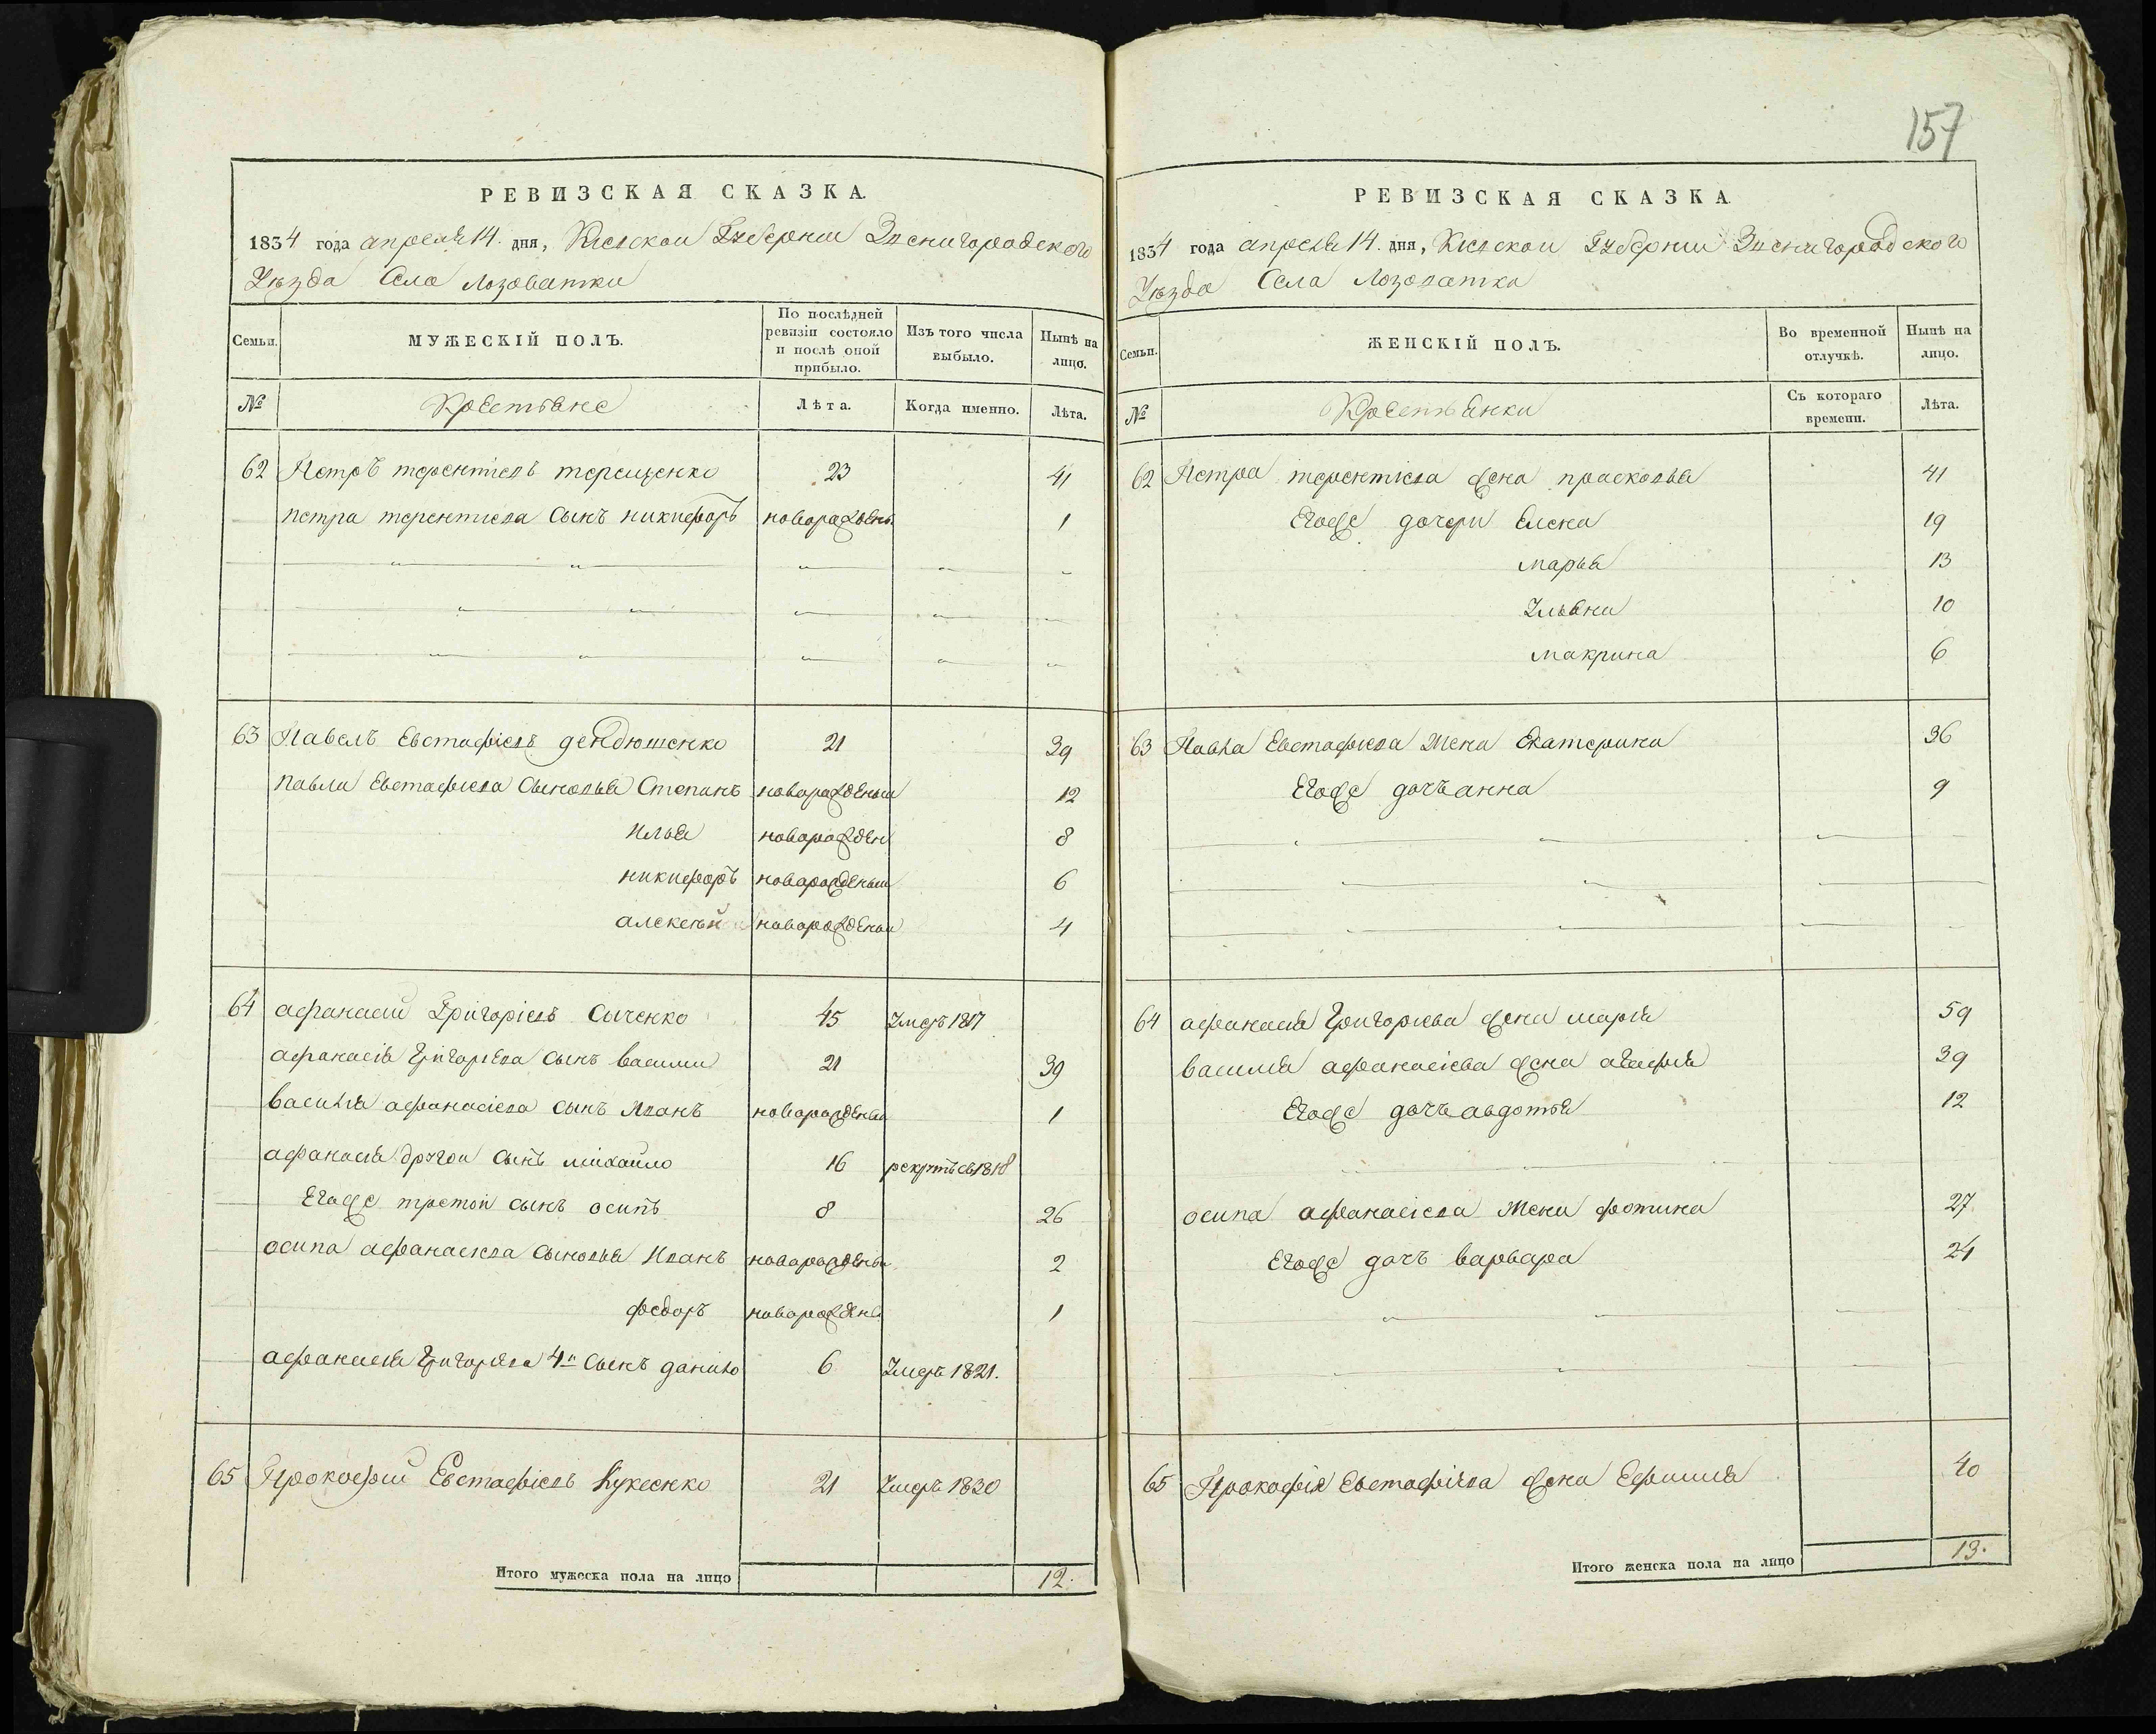 157
РЕВИЗСКАЯ СКАЗКА.
1834 года апреля 14. дня, Киевской Губернии Звенигородского
Уѣзда Села Лозоватки
Семьи.
МУЖЕСКІЙ ПОЛЪ.
По послѣдней ревизіи состояло и послѣ оной прибыло.
Изъ того числа выбыло.
Нынѣ на лицо.
№ Крестьяне Лѣта. Когда именно. Лѣта.
62 Петръ терентіевъ терещенко 23 41
петра терентиева Сынъ никифоръ новорожденъ. 1
63 Павелъ Евстафіевъ дендюшенко 21 39
павла Евстафиева Сыновья Степанъ новорожденыи 12
илья новорожден 8
никифоръ новорожденыи 6
алексѣй новорожденыи 4
64 афанасий Григоріевъ Сыченко 45 Умеръ 1817
афанасія Григориева Сынъ василии 21 39
василия афанасіева сынъ Иванъ новорожденыи 1
афанасия другои Сынъ михайло 16 рекрутъ въ 1818
Егоже третой сынъ осипъ 8 26
осипа афанасиева Сыновья Иванъ новорожденыи 2
федоръ новорожденъ 1
афанасия Григориева 4й Сынъ данило 6 Умеръ 1821.
65 Прокофий Евстафіевъ 21 Умеръ 1830
Итого мужеска пола на лицо 12.
РЕВИЗСКАЯ СКАЗКА.
1834 года апреля 14. дня, Киевской Губернии Звенигородского
Уѣзда Села Лозоватки
Семьи.
ЖЕНСКІЙ ПОЛЪ.
Во временной отлучкѣ.
Нынѣ на лицо.
№ Крестьянки Съ котораго времени. Лѣта.
62 Петра терентіева жена прасковья 41
Егоже дочери Елена 19
марья 13
Ульяна 10
макрина 6
63 Павла Евстафиева Жена Екатерина 36
Егоже дочъ анна 9
64 афанасия Григориева жена мария 59
василия афанасіева жена агафия 39
Егоже дочъ авдотья 12
осипа афанасіева Жена фотина 27
Егоже дочъ варвара 24
65 Прокофия Евстафиева жена Ефимия 40
Итого женска пола на лицо 13.